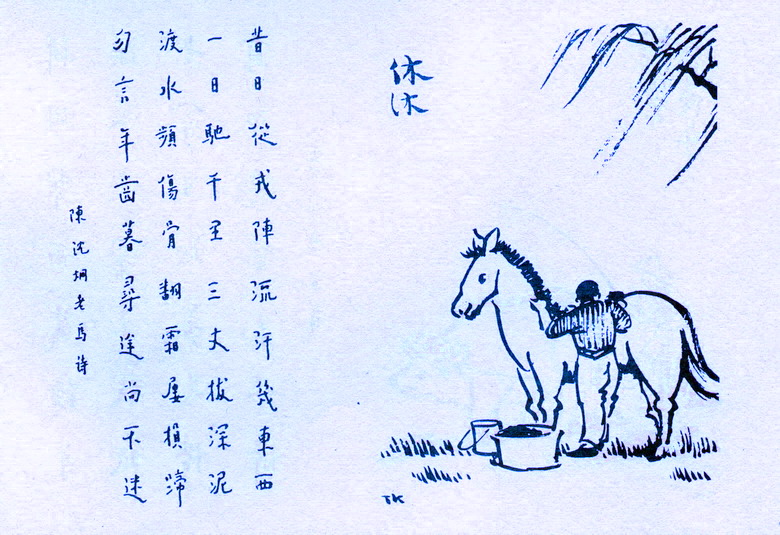 休沐
昔日從戎陣流汗幾東西
一日馳千里三丈拔深泥
渡水頻傷骨翻霜屢損蹄
勿言年齒暮尋途尚不迷
陳沈烱老馬诗
TK